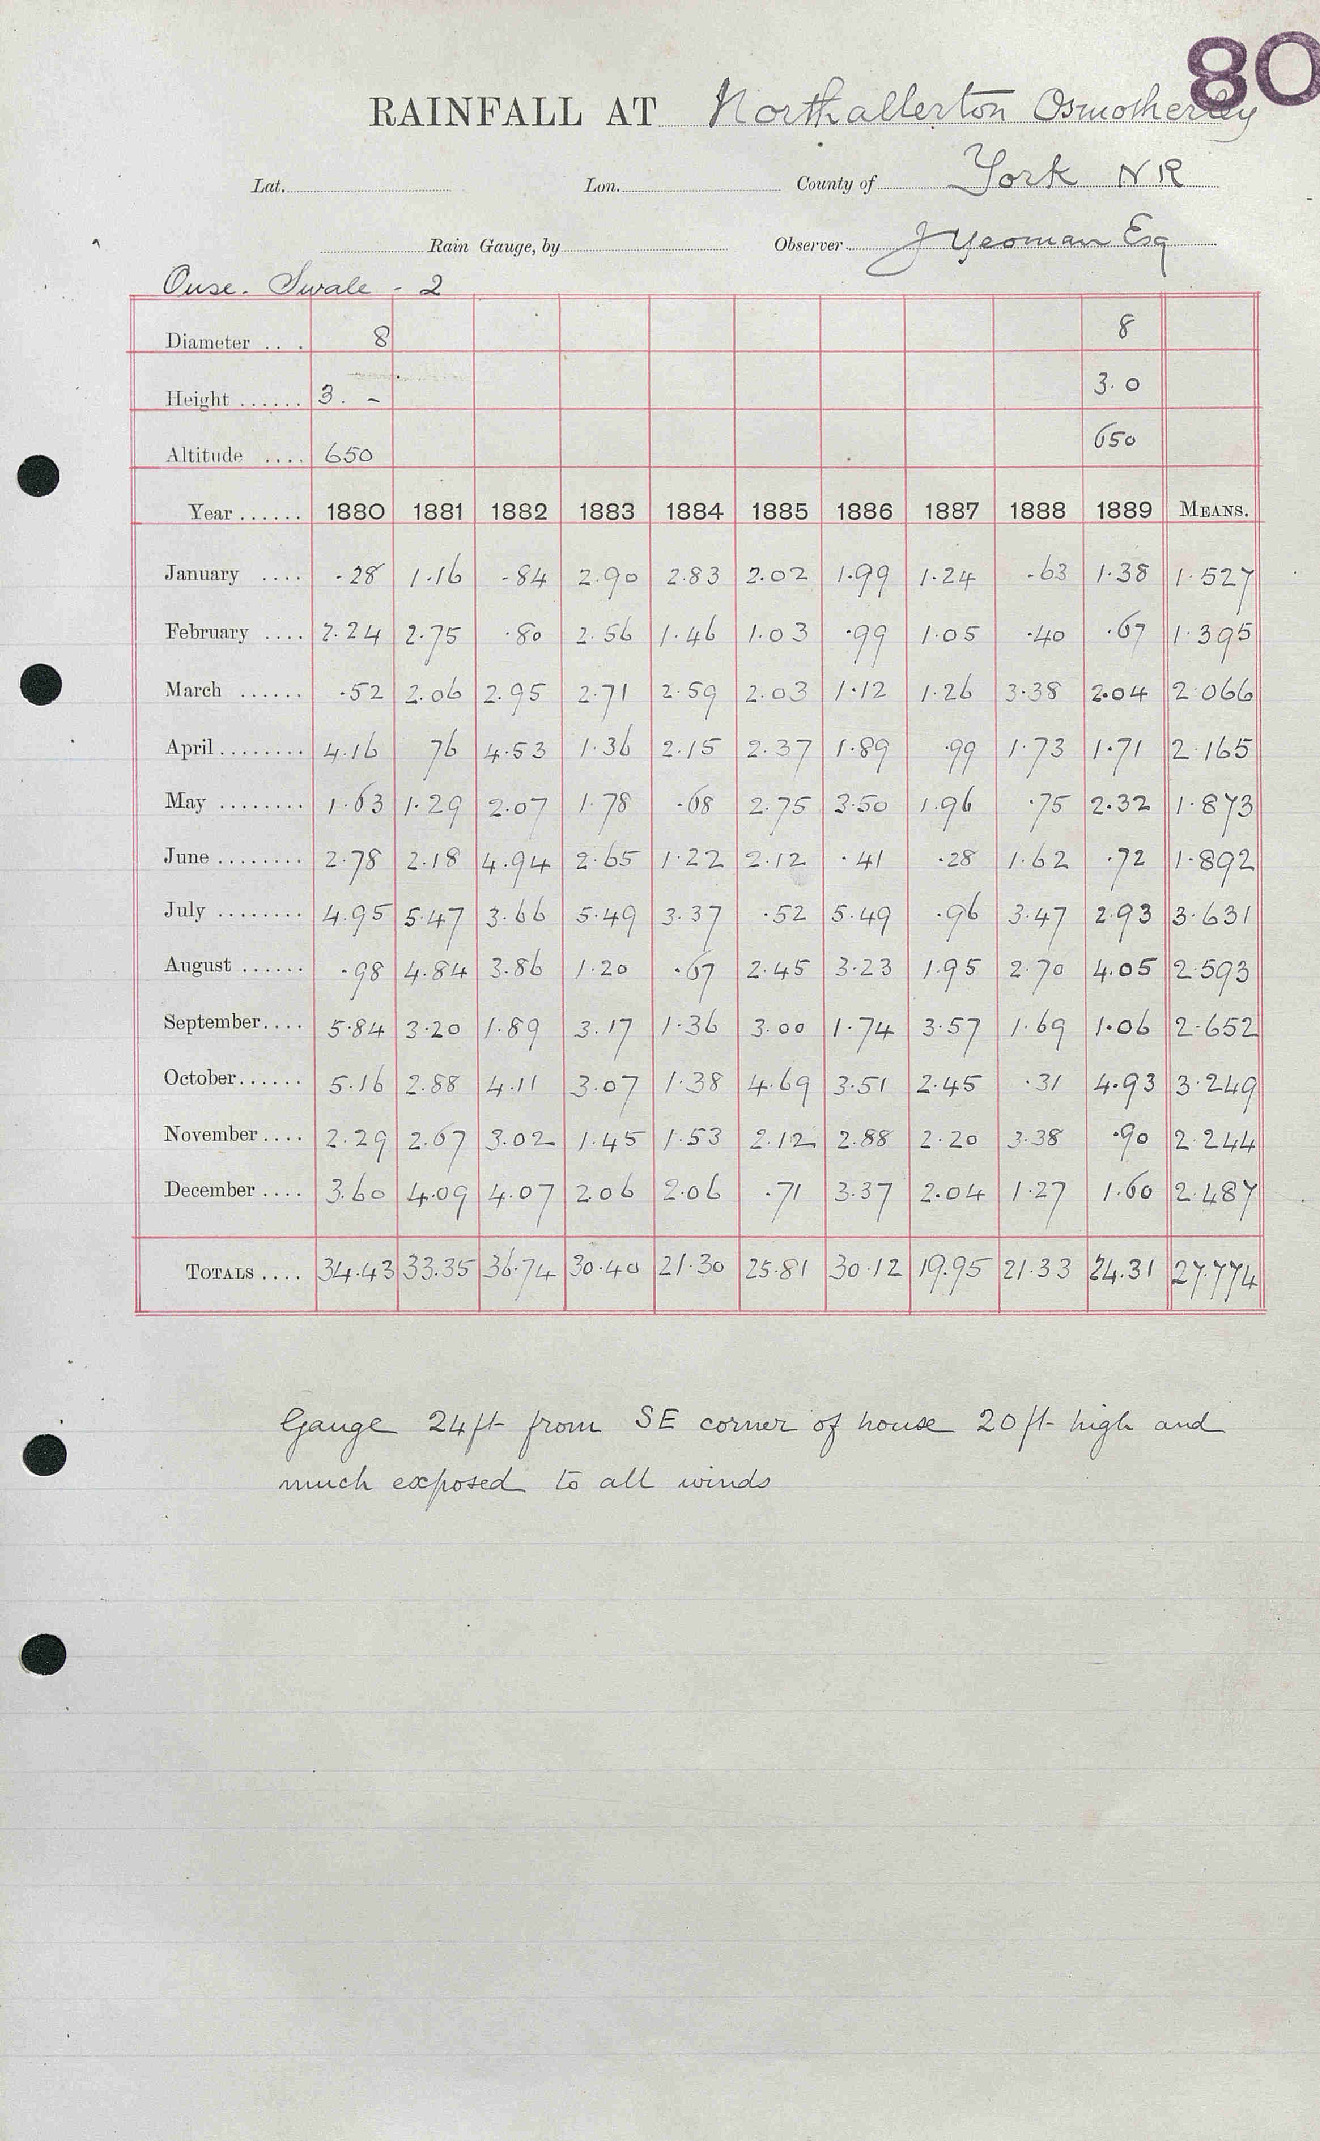 80
RAINFALL AT Northallerton Osmotherley
Lat. Lon. County of York NR
Rain Gauge, by Observer J Yeoman Esq
Ouse. Swale - 2
Diameter ... 8 8
Height ...... 3. - 3.0
Altitude .... 650 650
Year ...... 1880 1881 1882 1883 1884 1885 1886 1887 1888 1889 MEANS.
January .... .28 1.16 .84 2.90 2.83 2.02 1.99 1.24 .63 1.38 1.527
February .... 2.24 2.75 .80 2.56 1.46 1.03 .99 1.05 .40 .67 1.395
March ...... .52 2.06 2.95 2.71 2.59 2.03 1.12 1.26 3.38 2.04 2.066
April ........ 4.16 76 4.53 1.36 2.15 2.37 1.89 .99 1.73 1.71 2.165
May ........ 1.63 1.29 2.07 1.78 .68 2.75 3.50 1.96 .75 2.32 1.873
June ........ 2.78 2.18 4.94 2.65 1.22 2.12 .41 .28 1.62 .72 1.892
July ........ 4.95 5.47 3.66 5.49 3.37 .52 5.49 .96 3.47 2.93 3.631
August ...... .98 4.84 3.86 1.20 .67 2.45 3.23 1.95 2.70 4.05 2.593
September.... 5.84 3.20 1.89 3.17 1.36 3.00 1.74 3.57 1.69 1.06 2.652
October...... 5.16 2.88 4.11 3.07 1.38 4.69 3.51 2.45 .31 4.93 3.249
November.... 2.29 2.67 3.02 1.45 1.53 2.12 2.88 2.20 3.38 .90 2.244
December .... 3.60 4.09 4.07 2.06 2.06 .71 3.37 2.04 1.27 1.60 2.487
TOTALS .... 34.43 33.35 36.74 30.40 21.30 25.81 30.12 19.95 21.33 24.31 27.774
Gauge 24ft from SE corner of house 20ft high and
much exposed to all winds